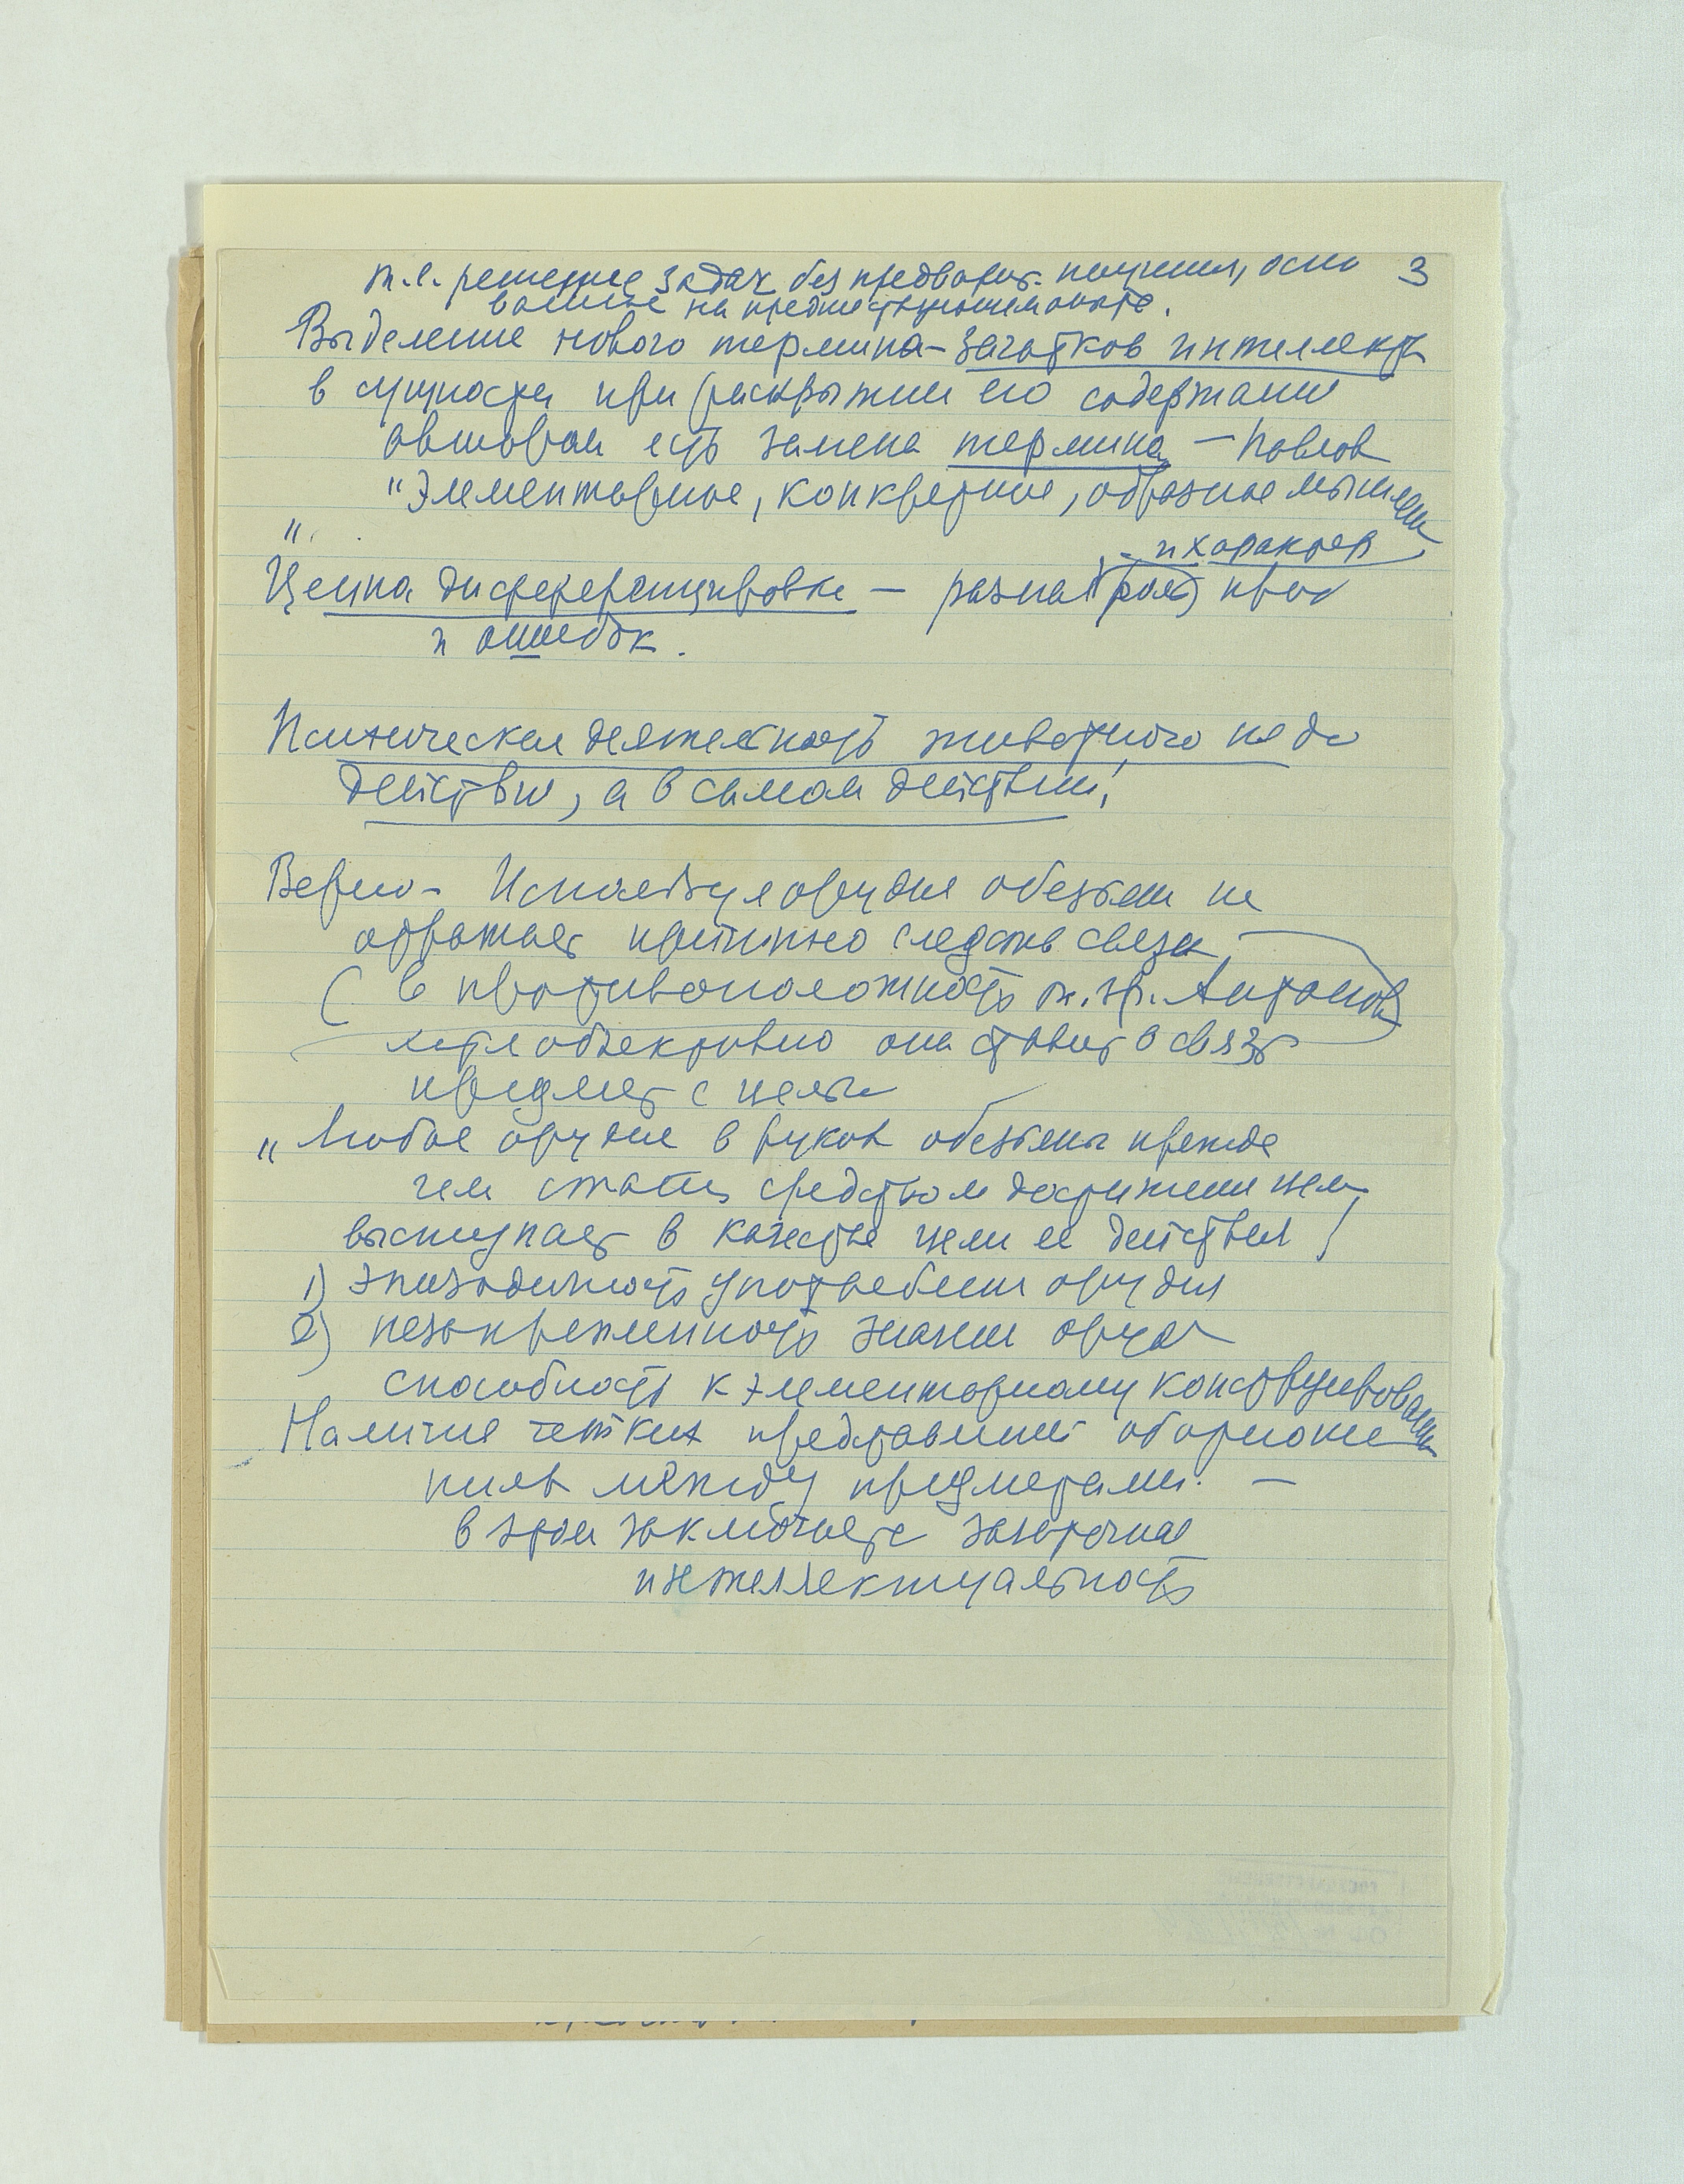 3
т.е. решение задач без предварит. научения, осно
ванное на предшествующем опыте.
Выделение нового термина – зачатков интеллекта
в сущности при раскрытии его содержания
автором есть замена термина – Павлов
"Элементарное, конкретное, образное мышлен
"
и характер
Ценна дифференцировка – разная роль проб
и ошибок.
Психическая деятельность животного не до
действия, а в самом действии!
Верно – Используя орудия обезьяна не
отражает причинно следств связи
(в противоположность т. зр. Антонов)
хотя объективно она ставит в связь
предмет с целью
"Любое орудие в руках обезьяны прежде
чем стать средством достижения цели
выступает в качестве цели ее действия!
1) эпизодичность употребления орудия
2) незакрепленность знания оруд
способность к элементарному конструирован
Наличие четких представлений об отноше
ниях между предметами. –
в этом заключается зачаточная
интеллектуальность